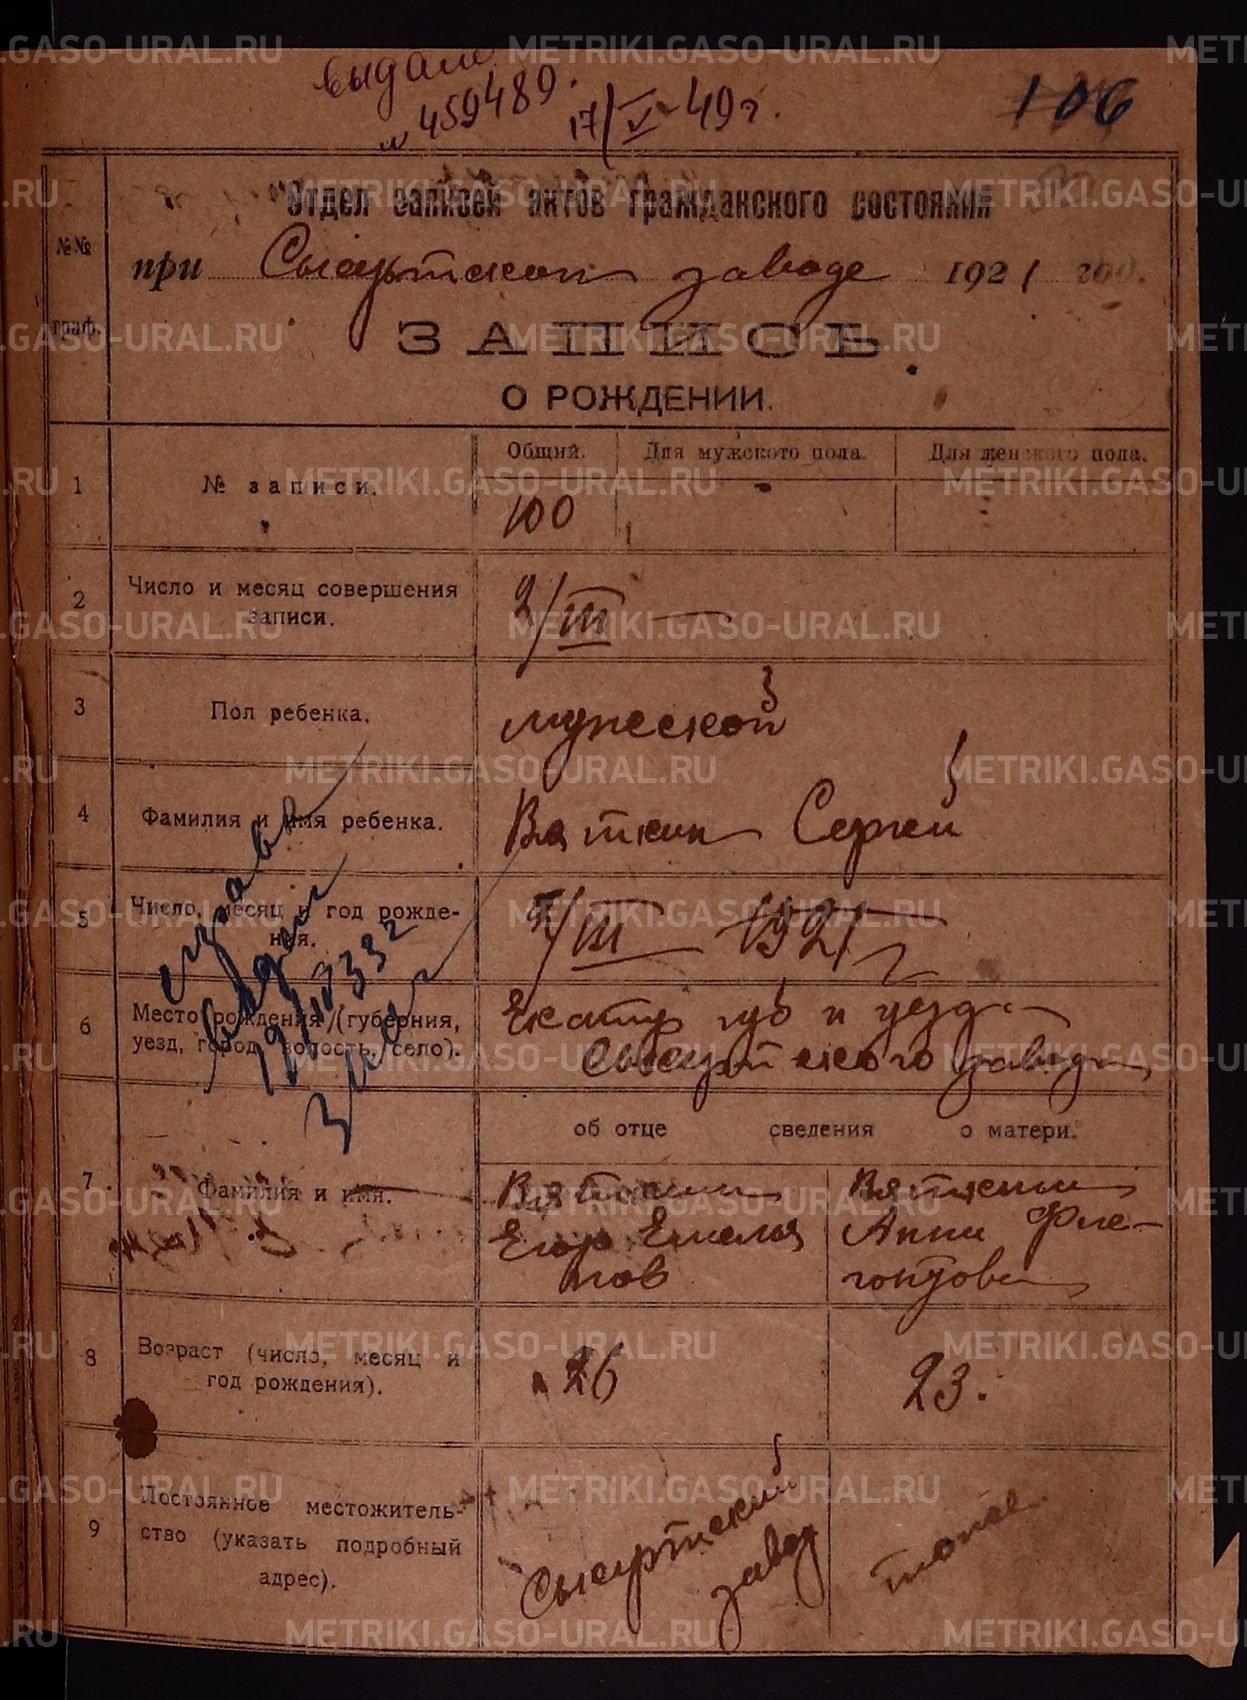 выдано
№ 459489. 17/V-49г.
106
Отдел записей актов гражданского состояния
№№
граф.
при Сысертском заводе 1921 год.
ЗАПИСЬ
О РОЖДЕНИИ.
1
№ записи.
Общий.
Для мужского пола.
Для женского пола.
100
2
Число и месяц совершения
записи.
2/III
3
Пол ребенка.
мужской
4
Фамилия и имя ребенка.
Вяткин Сергей
5
Число, месяц и год рожде-
ния.
/III 1921 г
6
Место рождения (губерния,
уезд, город, волость, село).
Екатер губ и уезда
Сысертского завода
об отце сведения о матери.
7
Фамилия и имя.
Вяткин
Егор Емелья
нов
Вяткина
Анна Фле-
гонтова
8
Возраст (число, месяц и
год рождения).
26
23.
9
Постоянное местожитель-
ство (указать подробный
адрес).
Сысертский
завод
тоже
METRIKI.GASO-URAL.RU